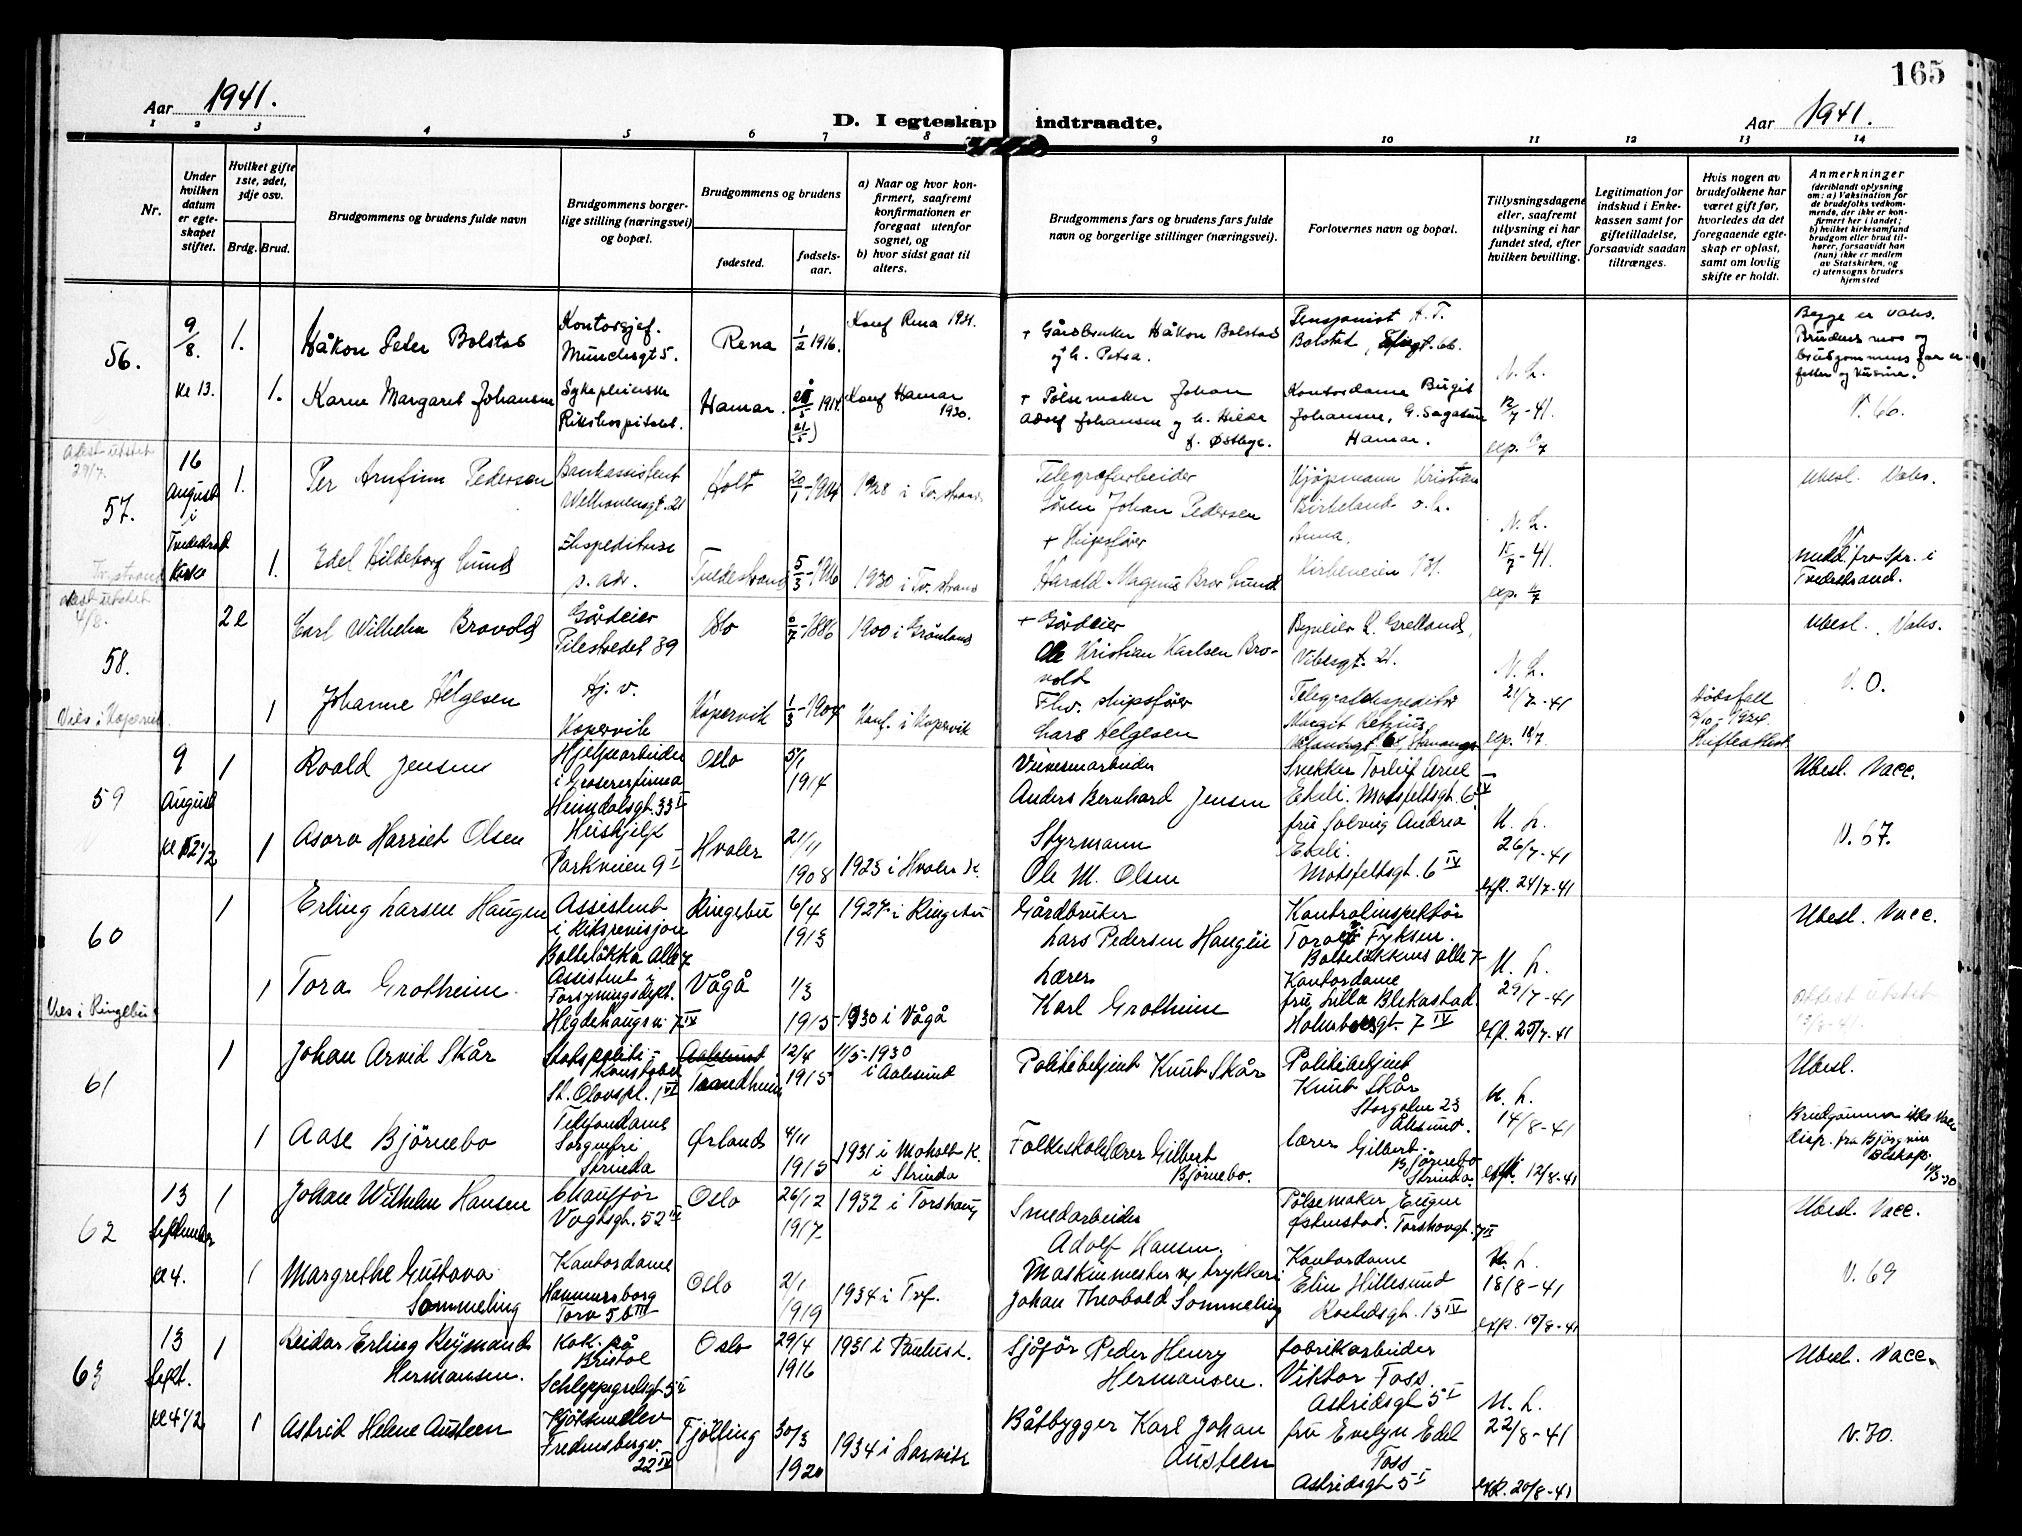 165
Aar 1941.
D. I egteskap indtraadte.
Aar 1941.
1 2 3 4 5 6 7 8 9 10 11 12 13 14
Nr.
Under hvilken datum er egteskapet stiftet.
Hvilket gifte 1ste, 2det, 3dje osv.
Brdg. Brud.
Brudgommens og brudens fulde navn
Brudgommens borgerlige stilling (næringsvei) og bopæl.
Brudgommens og brudens
fødested.
fødselsaar.
a) Naar og hvor konfirmert, saafremt konfirmationen er foregaat utenfor sognet, og
b) hvor sidst gaat til alters.
Brudgommens fars og brudens fars fulde navn og borgerlige stillinger (næringsvei).
Forlovernes navn og bopæl.
Tillysningsdagene eller, saafremt tillysning ei har fundet sted, efter hvilken bevilling.
Legitimation for indskud i Enkekassen samt for giftetilladelse, forsaavidt saadan tiltrænges.
Hvis nogen av brudefolkene har været gift før, hvorledes da det foregaaende egteskap er opløst, samt om lovlig skifte er holdt.
Anmerkninger
(deriblandt oplysning om: a) Vaksination for de brudefolks vedkommende, der ikke er konfirmert her i landet; b) hvilket kirkesamfund brudgom eller brud tilhører, forsaavidt han (hun) ikke er medlem av Statskirken, og c) utensogns bruders hjemsted
56. 9/8. 1. Håkon Peter Bolstad Kontorsjef. Munchsgt 5. Rena 1/2 1916. Konf Rena 1931. + Gårdbruker Håkon Bolstad og h. Petra. Pensjonist H. T. Bolstad Begge er vaks. Brudens mor og brudgommens far er fetter og kusine.
Kl 13. 1. Karen Margaret Johansen Sykepleierske Rikshospitalet. Hamar. 1914. (21/5) Konf Hamar 1930. + Pølsemaker Johan Adolf Johansen og h. Hilda f. Østbye. Kontordame Hamar. N. L. 12/7-41. V. 66.
57. Attest utstedt 29/7. 16 August i Tvedestrand Kirke 1. Per Arnfinn Pedersen Bankassistent Welhavensgt. 21 Holt 20/1 1914 1928 i Tv.strand Telegrafarbeider Søren Johan Pedersen Kjøpmann Kristian Birkeland o. h. Anna, Kirkeveien Ubesl. Vaks.
Tv. strand 1. Edel Hildeborg Lund Ekspeditrise s. adr. Tvedestrand 5/3-1916 1930 i Tv. strand + Skipsfører Harald Magnus Brov Lund N. L. 15/7-41 exp. 11/7 V. medd. fra Spr. i Tvedestrand.
58. Attest utstedt 4/8. 2e Carl Wilhelm Brovold Gårdeier Pilestredet 39 Oslo 1886 1900 i Grønland + Gårdeier Ole Kristian Karlsen Brovold L. Grelland, Vibesgt. 21. N. L. Ubesl. Vaks.
Vies i Kopervik. 1 Johanne Helgesen Hj. v. Kopervik Kopervik 1/3-1904 Konf. i Kopervik Fhv. skipsfører Lars Helgesen Telegrafekspeditør Margit Stavanger 21/7-41 exp. 18/7. Dødsfall 1924. Skifteattest V. O.
59 9 August 1 Roald Jensen Hjelpearbeider i Grosererfirma Heimdalsgt. 33 I Oslo 5/1 1914 Anders Bernhard Jensen Snekker Torleif Arne Ekeli. Motzfeldtsgt. 6 IV Ubesl. Vacc.
1 Asora Harriet Olsen Hushjelp Parkveien 9 I Hvaler 21/11 1908 1923 i Hvaler K. Styrmann Ole M. Olsen fru Solveig Andrea Ekeli. Motzfeldtsgt. 6 IV N. L. 26/7-41 exp. 24/7-41 V. 67.
60 1 Erling Larsen Haugen Assistent i Riksrevisjon Bolteløkka Alle 7 Ringebu 6/4 1913 1927 i Ringebu Gårdbruker Lars Pedersen Haugen Kontrollinspektør Torolf Fyksen. Bolteløkkens alle 7 Ubesl. Vacc.
Vies i Ringebu 1 Tora Grotheim. Assistent i Forsyningsdept. Hegdehaugsv. 7 IV Vågå 1/3 1915 1930 i Vågå Lærer Karl Grotheim Kontordame fru Lilla Blekastad. Holmboesgt. 7 IV N. L. 29/7-41 exp. 25/7-41 Attest utstedt
61 1 Johan Arvid Skår Statspoliti-Konstabel St. Olavspl. 1 VI Aalesund Trondheim 12/4 1915 11/5-1930 i Aalesund Politibetjent Knut Skår Politibetjent Knut Skår Storgaten 23 Ålesund. Ubesl.
1 Aase Bjørnebo Telefondame Sorgenfri Strinda Ørlands 4/11 1915 1931 i Moholt K. i Strinda Folkeskolelærer Gilbert Bjørnebo. Lærer Gilbert Bjørnebo Strinda. N. L. 14/8-41 exp. 12/8-41 Brudgommen ikke Vacc disp. fra Bjørgvin Biskop
62 13 September 1 Johan Wilhelm Hansen Chauffør Vogtsgt. 52 III Oslo 26/12 1917 1932 i Torshaug Smedarbeider Adolf Hansen. Pølsemaker Eugen Torshovgt. 7 II Ubesl. Vacc.
kl 4. 1 Margrethe Gustava Sommeling Kontordame Hammersborg Torv 5 b III Oslo 2/1 1919 1934 i Trf. Maskinmester v/ trykkeri Johan Theobald Sommeling Kontordame Elin Hillesund 13 IV N. L. 18/8-41 exp. 15/8-41 V. 69
63 13 Sept. 1 Reidar Erling Reymond Hermansen. Kok. på Bristol Schleppegrellsgt 5 II Oslo 29/4 1916 1931 i Paulus k. Sjåfør Peder Henry Hermansen. Fabrikarbeider Viktor Foss. Astridsgt 5 I Ubesl. Vacc.
kl 4 1/2 1 Astrid Helene Austeen Fredensborgv. 22 IV Tjölling 30/3 1920 1934 i Larvik Båtbygger Karl Johan Austeen fru Evelyn Edel Foss Astridsgt 5 I N. L. 22/8-41 exp. 20/8-41 V. 70.